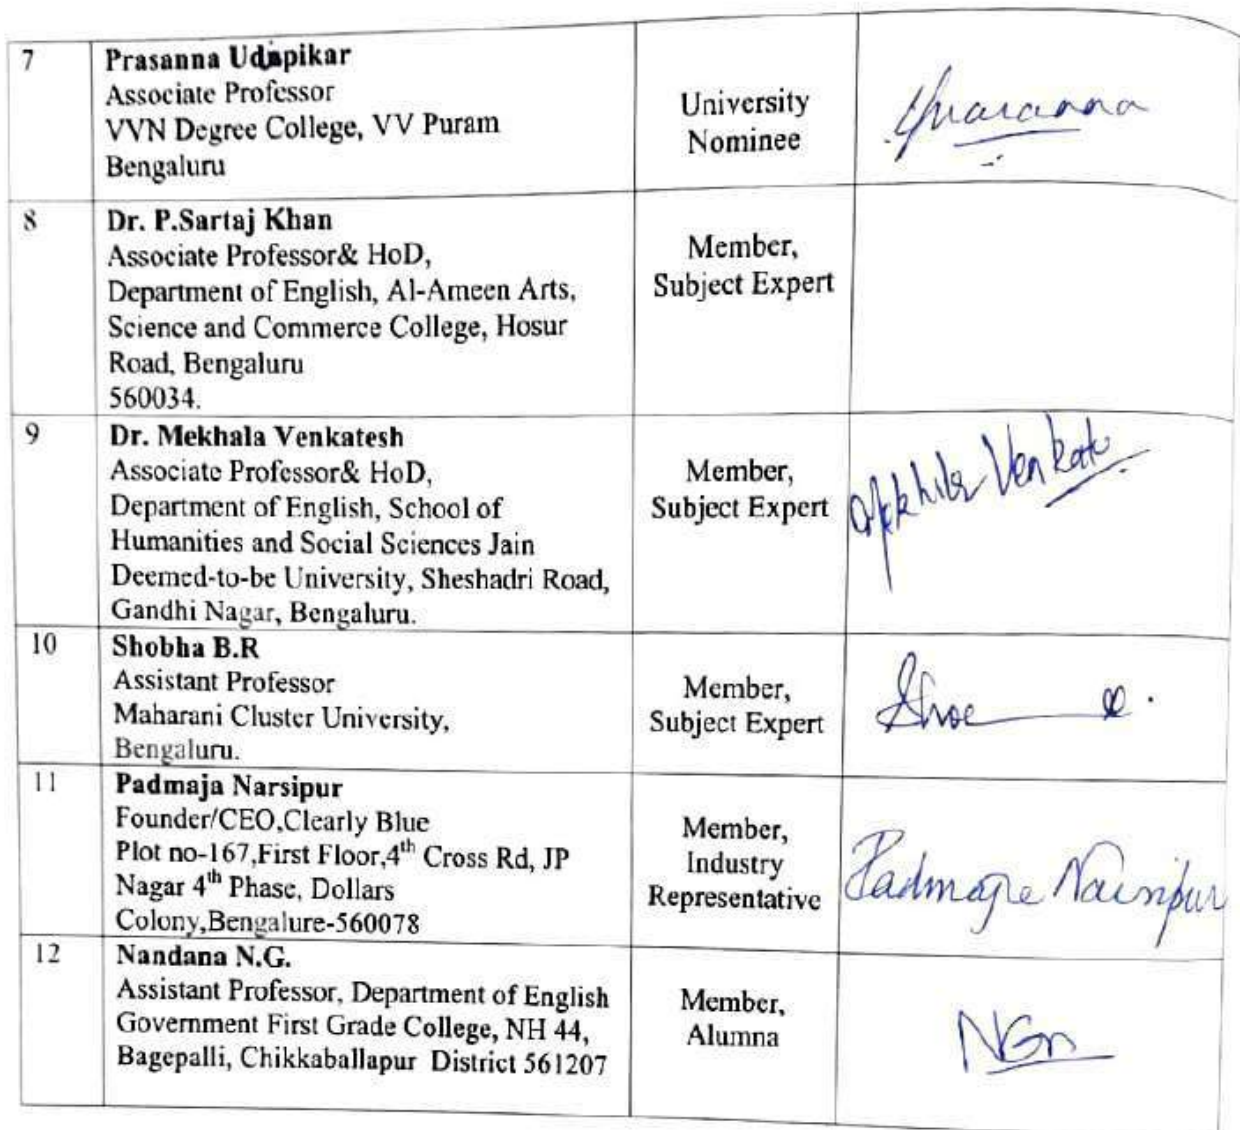 7
Prasanna Udupikar
Associate Professor
VVN Degree College, VV Puram
Bengaluru
University
Nominee
Prasanna
8
Dr. P.Sartaj Khan
Associate Professor& HoD,
Department of English, Al-Ameen Arts,
Science and Commerce College, Hosur
Road, Bengaluru
560034.
Member,
Subject Expert
9
Dr. Mekhala Venkatesh
Associate Professor& HoD,
Department of English, School of
Humanities and Social Sciences Jain
Deemed-to-be University, Sheshadri Road,
Gandhi Nagar, Bengaluru.
Member,
Subject Expert
10
Shobha B.R
Assistant Professor
Maharani Cluster University,
Bengaluru.
Member,
Subject Expert
11
Padmaja Narsipur
Founder/CEO,Clearly Blue
Plot no-167,First Floor,4th Cross Rd, JP
Nagar 4th Phase, Dollars
Colony,Bengalure-560078
Member,
Industry
Representative
Padmaja Narsipur
12
Nandana N.G.
Assistant Professor, Department of English
Government First Grade College, NH 44,
Bagepalli, Chikkaballapur District 561207
Member,
Alumna
NGn